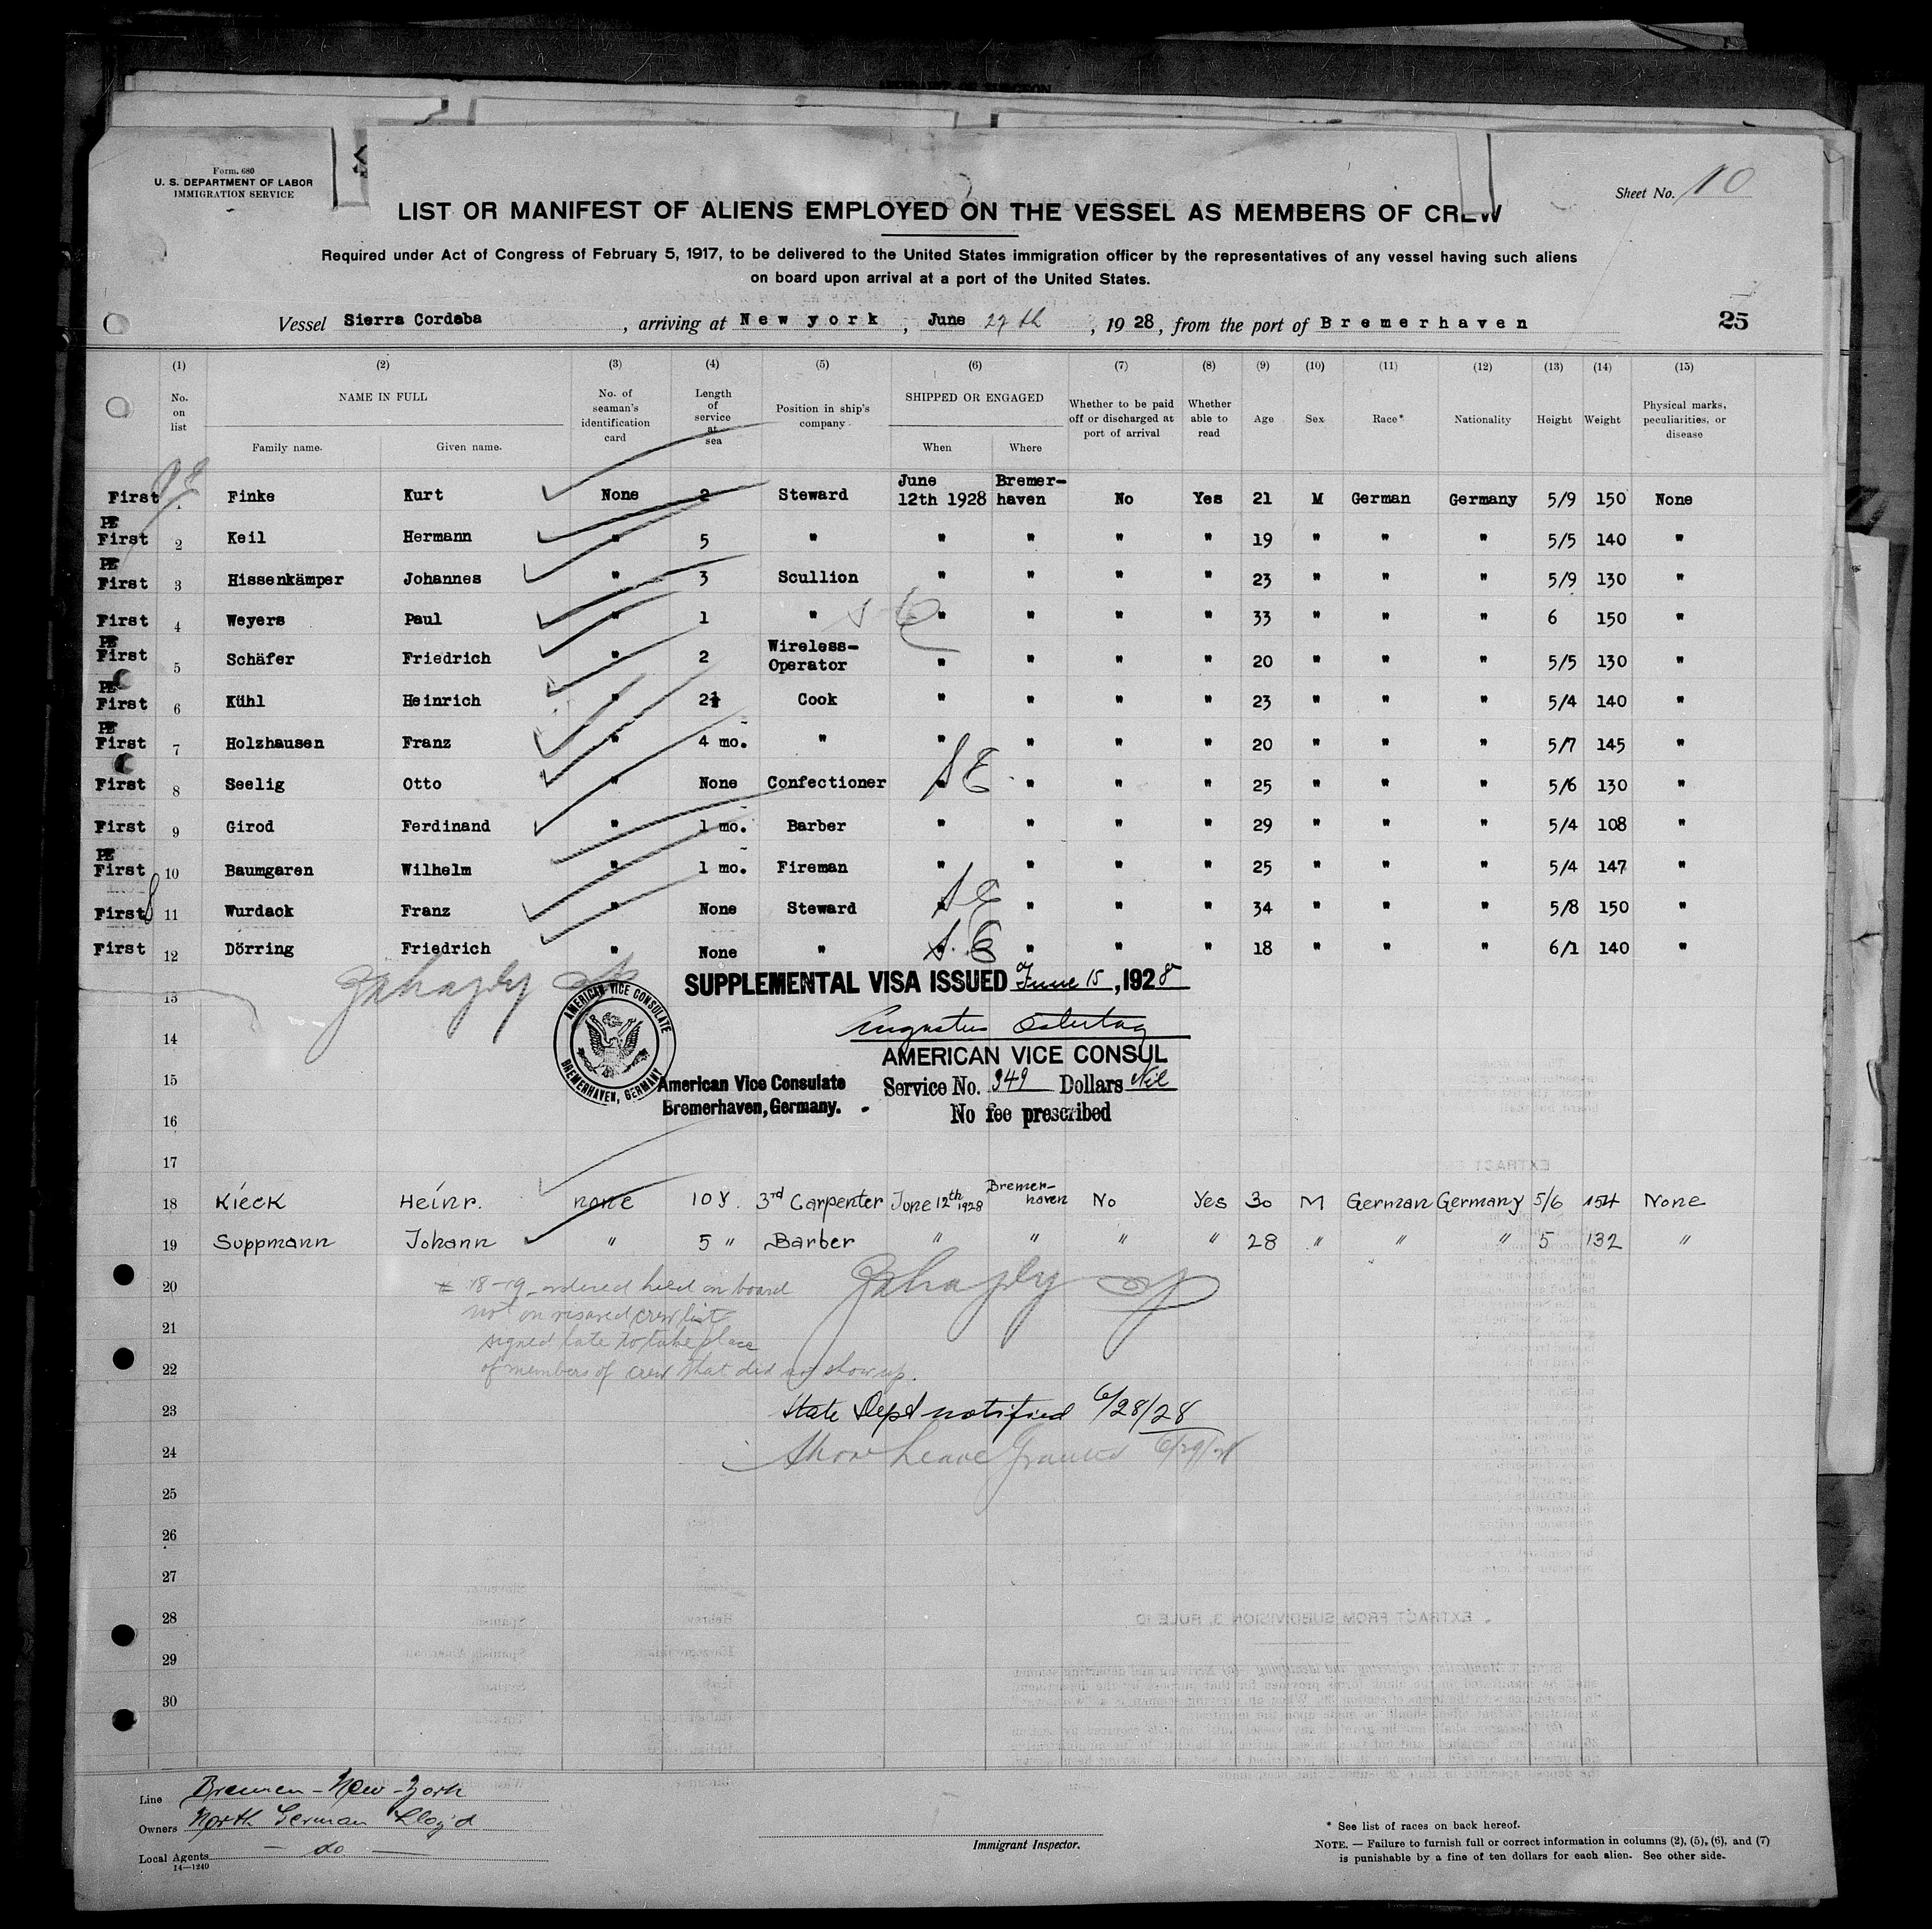 Form. 680
U. S. DEPARTMENT OF LABOR
IMMIGRATION SERVICE
Sheet No. 10
LIST OR MANIFEST OF ALIENS EMPLOYED ON THE VESSEL AS MEMBERS OF CREW
Required under Act of Congress of February 5, 1917, to be delivered to the United States immigration officer by the representatives of any vessel having such aliens
on board upon arrival at a port of the United States.
Vessel Sierra Cordoba, arriving at New york, June 27 th, 1928, from the port of Bremerhaven
25
(1) (2) (3) (4) (5) (6) (7) (8) (9) (10) (11) (12) (13) (14) (15)
No. on list NAME IN FULL Family name. Given name. No. of seaman's identification card Length of service at sea Position in ship's company SHIPPED OR ENGAGED When Where Whether to be paid off or discharged at port of arrival Whether able to read Age Sex Race* Nationality Height Weight Physical marks, peculiarities, or disease
First 1 Finke Kurt None 2 Steward June 12th 1928 Bremer-haven No Yes 21 M German Germany 5/9 150 None
PE First 2 Keil Hermann " 5 " " " " " 19 " " " 5/5 140 "
PE First 3 Hissenkämper Johannes " 3 Scullion " " " " 23 " " " 5/9 130 "
First 4 Weyers Paul " 1 " " " " " 33 " " " 6 150 "
PE First 5 Schäfer Friedrich " 2 Wireless-Operator " " " " 20 " " " 5/5 130 "
PE First 6 Kühl Heinrich " 2 Cook " " " " 23 " " " 5/4 140 "
PE First 7 Holzhausen Franz " 4 mo. " " " " " 20 " " " 5/7 145 "
First 8 Seelig Otto " None Confectioner " " " " 25 " " " 5/6 130 "
First 9 Girod Ferdinand " 1 mo. Barber " " " " 29 " " " 5/4 108 "
PE First 10 Baumgaren Wilhelm " 1 mo. Fireman " " " " 25 " " " 5/4 147 "
First 11 Wurdack Franz " None Steward " " " " 34 " " " 5/8 150 "
First 12 Dörring Friedrich " None " " " " " 18 " " " 6/1 140 "
13
SUPPLEMENTAL VISA ISSUED June 15, 1928
14
Augustus Ostertag
AMERICAN VICE CONSUL
AMERICAN VICE CONSULATE BREMERHAVEN, GERMANY
15
American Vice Consulate
Bremerhaven, Germany.
Service No. 349 Dollars Nil
No fee prescribed
16
17
18 Kieck Heinr. none 10 y. 3rd Carpenter June 12th 1928 Bremer-haven No Yes 30 M German Germany 5/6 154 None
19 Suppmann Johann " 5 " Barber " " " " 28 " " " 5 132 "
20
# 18-19 ordered held on board
not on visaed crew list
21
signed late to take place
22
of members of crew that did not show up.
23
State Dept notified 6/28/28
24
Shore Leave Granted 6/29/28
25
26
27
28
29
30
Line Bremen - New-York
Owners North German Lloyd
Local Agents - do -
14—1240
Immigrant Inspector.
* See list of races on back hereof.
NOTE. — Failure to furnish full or correct information in columns (2), (5), (6), and (7)
is punishable by a fine of ten dollars for each alien. See other side.